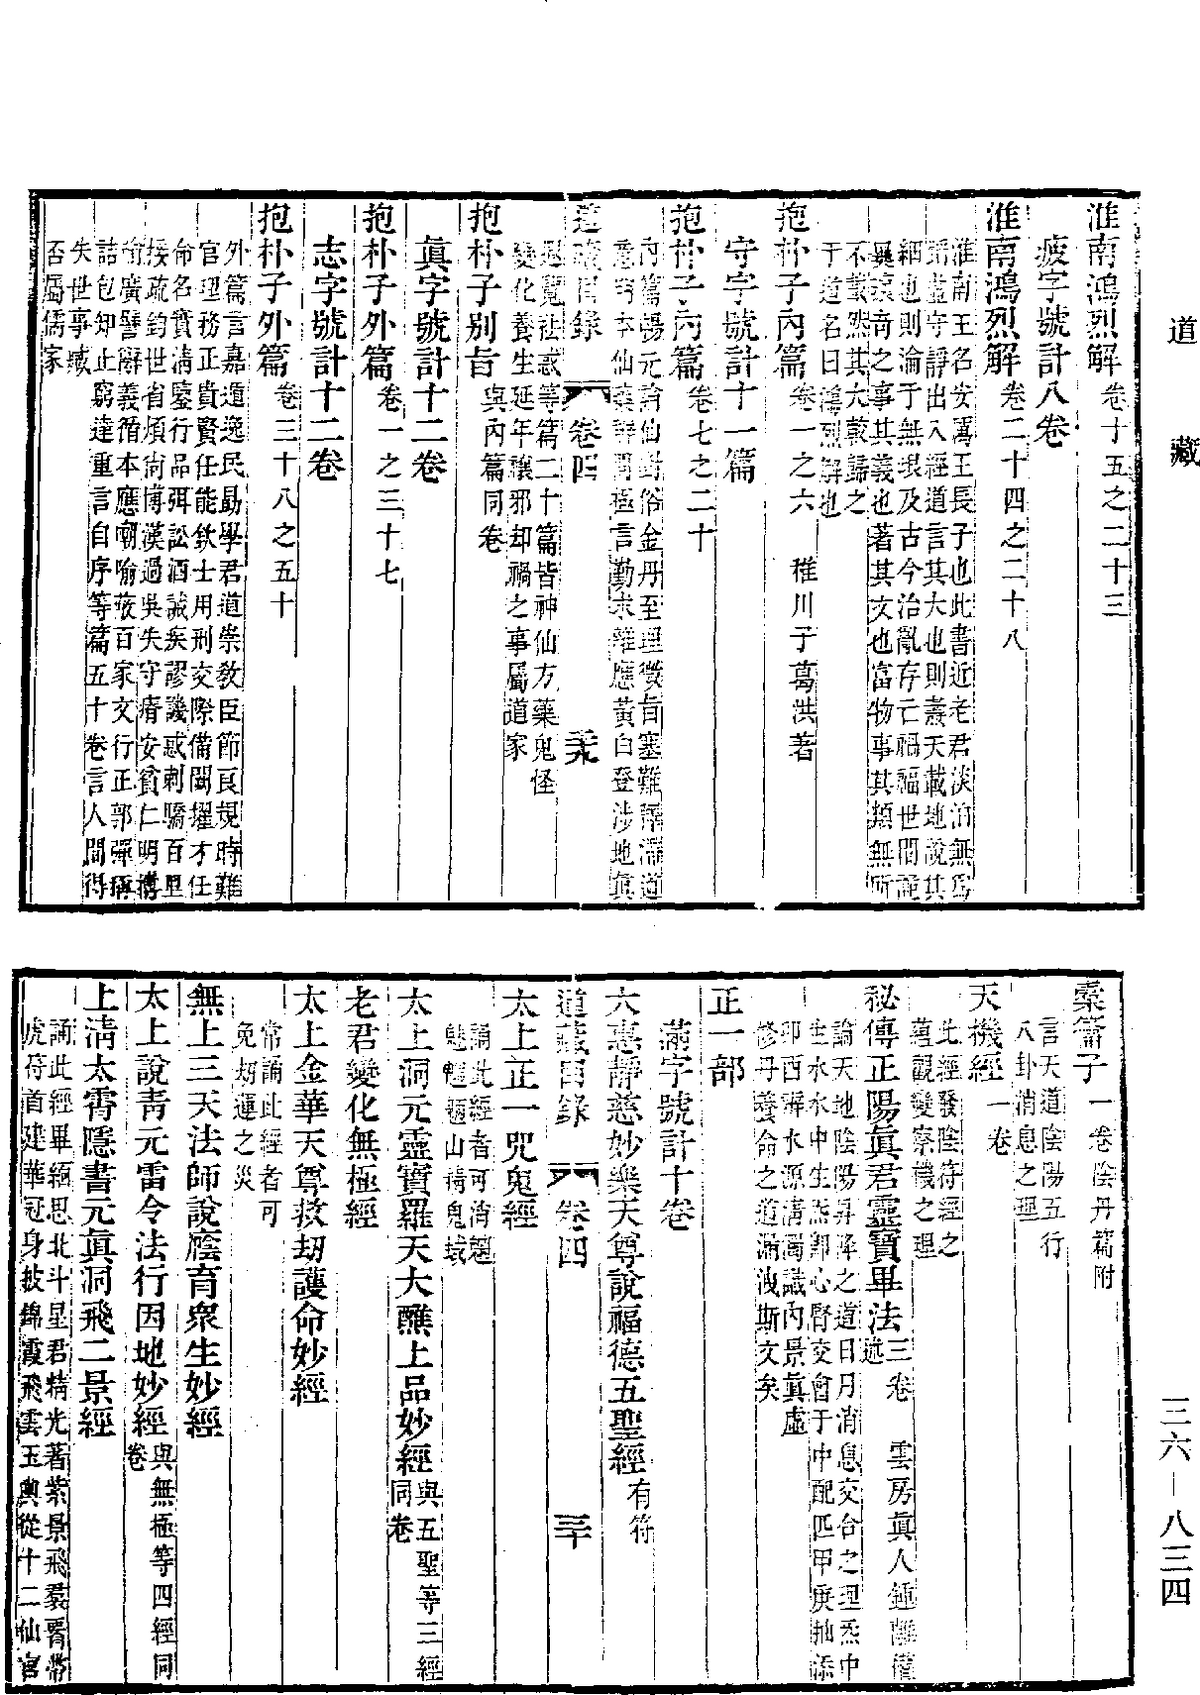 道藏
淮南鴻烈解卷十五之二十三
疲字號計八卷
淮南鴻烈解卷二十四之二十八
淮南王名安厲王長子也此書近老君淡泊無為
蹈虛守靜出入經道言其大也則燾天載地說其
細也則淪于無垠及古今治亂存亡禍福世間詭
異瓌奇之事其義也著其文也富物事其類無所
不載然其大較歸之
于道名曰鴻烈解也
抱朴子內篇卷一之六 稚川子葛洪著
守字號計十一篇
抱朴子內篇卷七之二十
內篇暢元論仙對俗金丹至理微旨塞難釋滯道
意明本仙藥辨問極言勤求雜應黃白登涉地真
道藏目錄 卷四 三十九
遐覽祛惑等篇二十篇皆神仙方藥鬼怪
變化養生延年禳邪却禍之事屬道家
抱朴子别旨與內篇同卷
眞字號計十二卷
抱朴子外篇卷一之三十七
志字號計十二卷
抱朴子外篇卷三十八之五十
外篇言嘉遁逸民勗學君道崇教臣節良規時難
官理務正貴賢任能欽士用刑交際備闕擢才任
命名實清鑒行品弭訟酒誡疾謬譏惑刺驕百里
接疏鈞世省煩尚博漢過吳失守塉安貧仁明博
喻廣譬辭義循本應嘲喻蔽百家文行正郭彈禰
詰包知止窮達重言自序等篇五十卷言人間得
失世事臧
否屬儒家
槖籥子一卷陰丹篇附
言天道陰陽五行
八卦消息之理
天機經一卷
此經發陰符經之
蘊觀變察機之理
秘傳正陽眞君靈寶畢法三卷 雲房眞人鍾離權述
論天地陰陽昇降之道日月消息交合之理炁中
生水水中生炁郭心腎交會于中配匹甲庚抽添
卯酉辨水源清濁識內景眞虛
修丹養侖之道漏洩斯文矣
正一部
滿字號計十卷
六惠靜慈妙樂天尊說福德五聖經有符
道藏目錄 卷四 三十
太上正一咒鬼經
誦此經者可消魍
魅魑魎山精鬼蜮
太上洞元靈寶羅天大醮上品妙經與五聖等三經同卷
老君變化無極經
太上金華天尊救劫護命妙經
常誦此經者可
免刼運之災
無上三天法師說廕育衆生妙經
太上說青元雷令法行因地妙經與無極等四經同卷
上清太霄隱書元眞洞飛二景經
誦此經畢緬思北斗星君精光著紫景飛裳晋帶
虎符首建華冠身披錦霞飛雲玉輿從十二仙官
三六—八三四